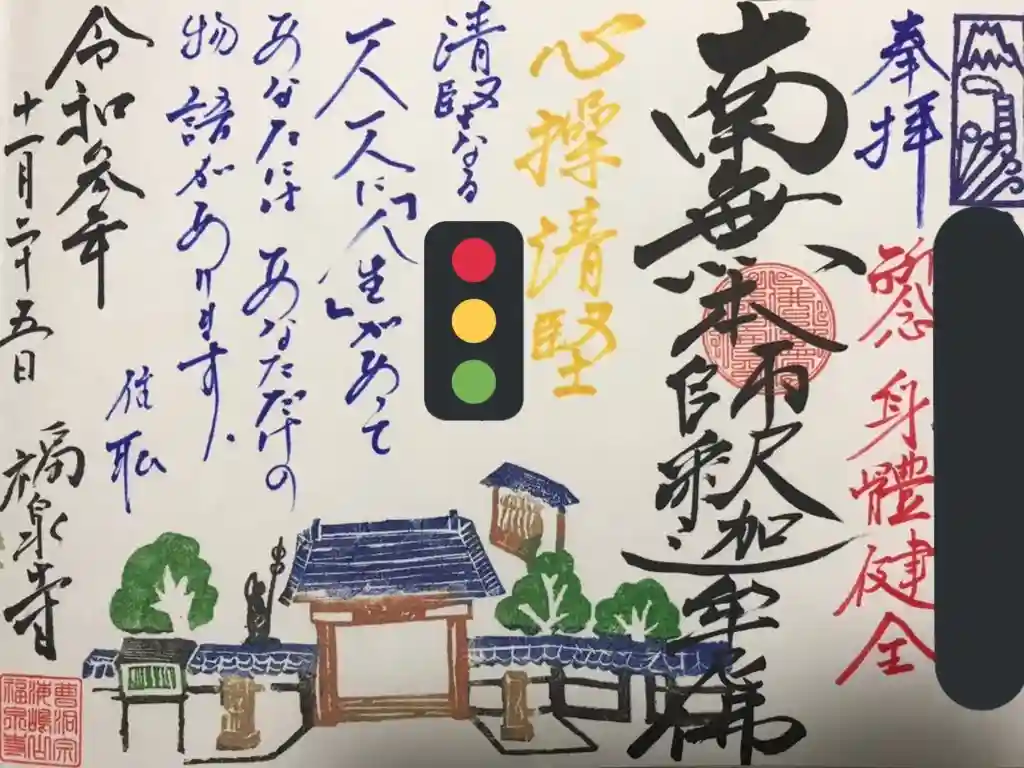 奉拝
祈念 身體健全
南無本師釈迦牟尼佛
心操清堅
清堅なる
一人一人に「人生」があって
あなたには あなただけの
物語があります.
住職
令和参年
十一月二十五日
福泉寺
曹洞宗
海嶋山
福泉寺